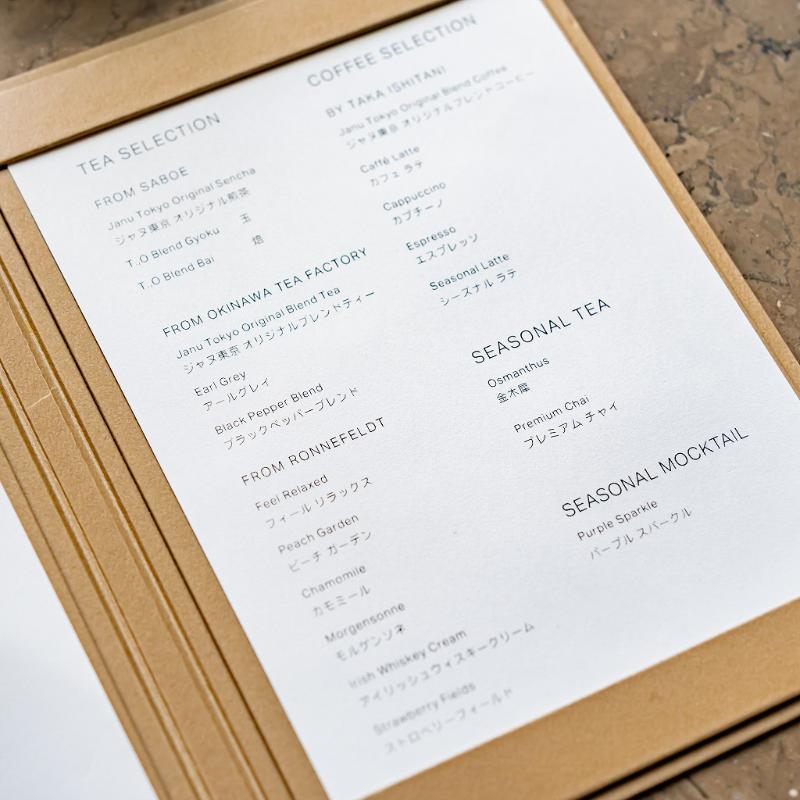 TEA SELECTION
FROM SABOE
Janu Tokyo Original Sencha
ジャヌ東京 オリジナル煎茶
T.,O Blend Gyoku 玉
T.,O Blend Bai 焙
FROM OKINAWA TEA FACTORY
Janu Tokyo Original Blend Tea
ジャヌ東京 オリジナルブレンドティー
Earl Grey
アールグレイ
Black Pepper Blend
ブラックペッパーブレンド
FROM RONNEFELDT
Feel Relaxed
フィール リラックス
Peach Garden
ピーチ ガーデン
Chamomile
カモミール
Morgensonne
モルゲンソネ
Irish Whiskey Cream
アイリッシュウィスキークリーム
Strawberry Fields
ストロベリーフィールド
COFFEE SELECTION
BY TAKA ISHITANI
Janu Tokyo Original Blend Coffee
ジャヌ東京 オリジナルブレンドコーヒー
Caffé Latte
カフェ ラテ
Cappuccino
カプチーノ
Espresso
エスプレッソ
Seasonal Latte
シーズナル ラテ
SEASONAL TEA
Osmanthus
金木犀
Premium Chai
プレミアム チャイ
SEASONAL MOCKTAIL
Purple Sparkle
パープル スパークル